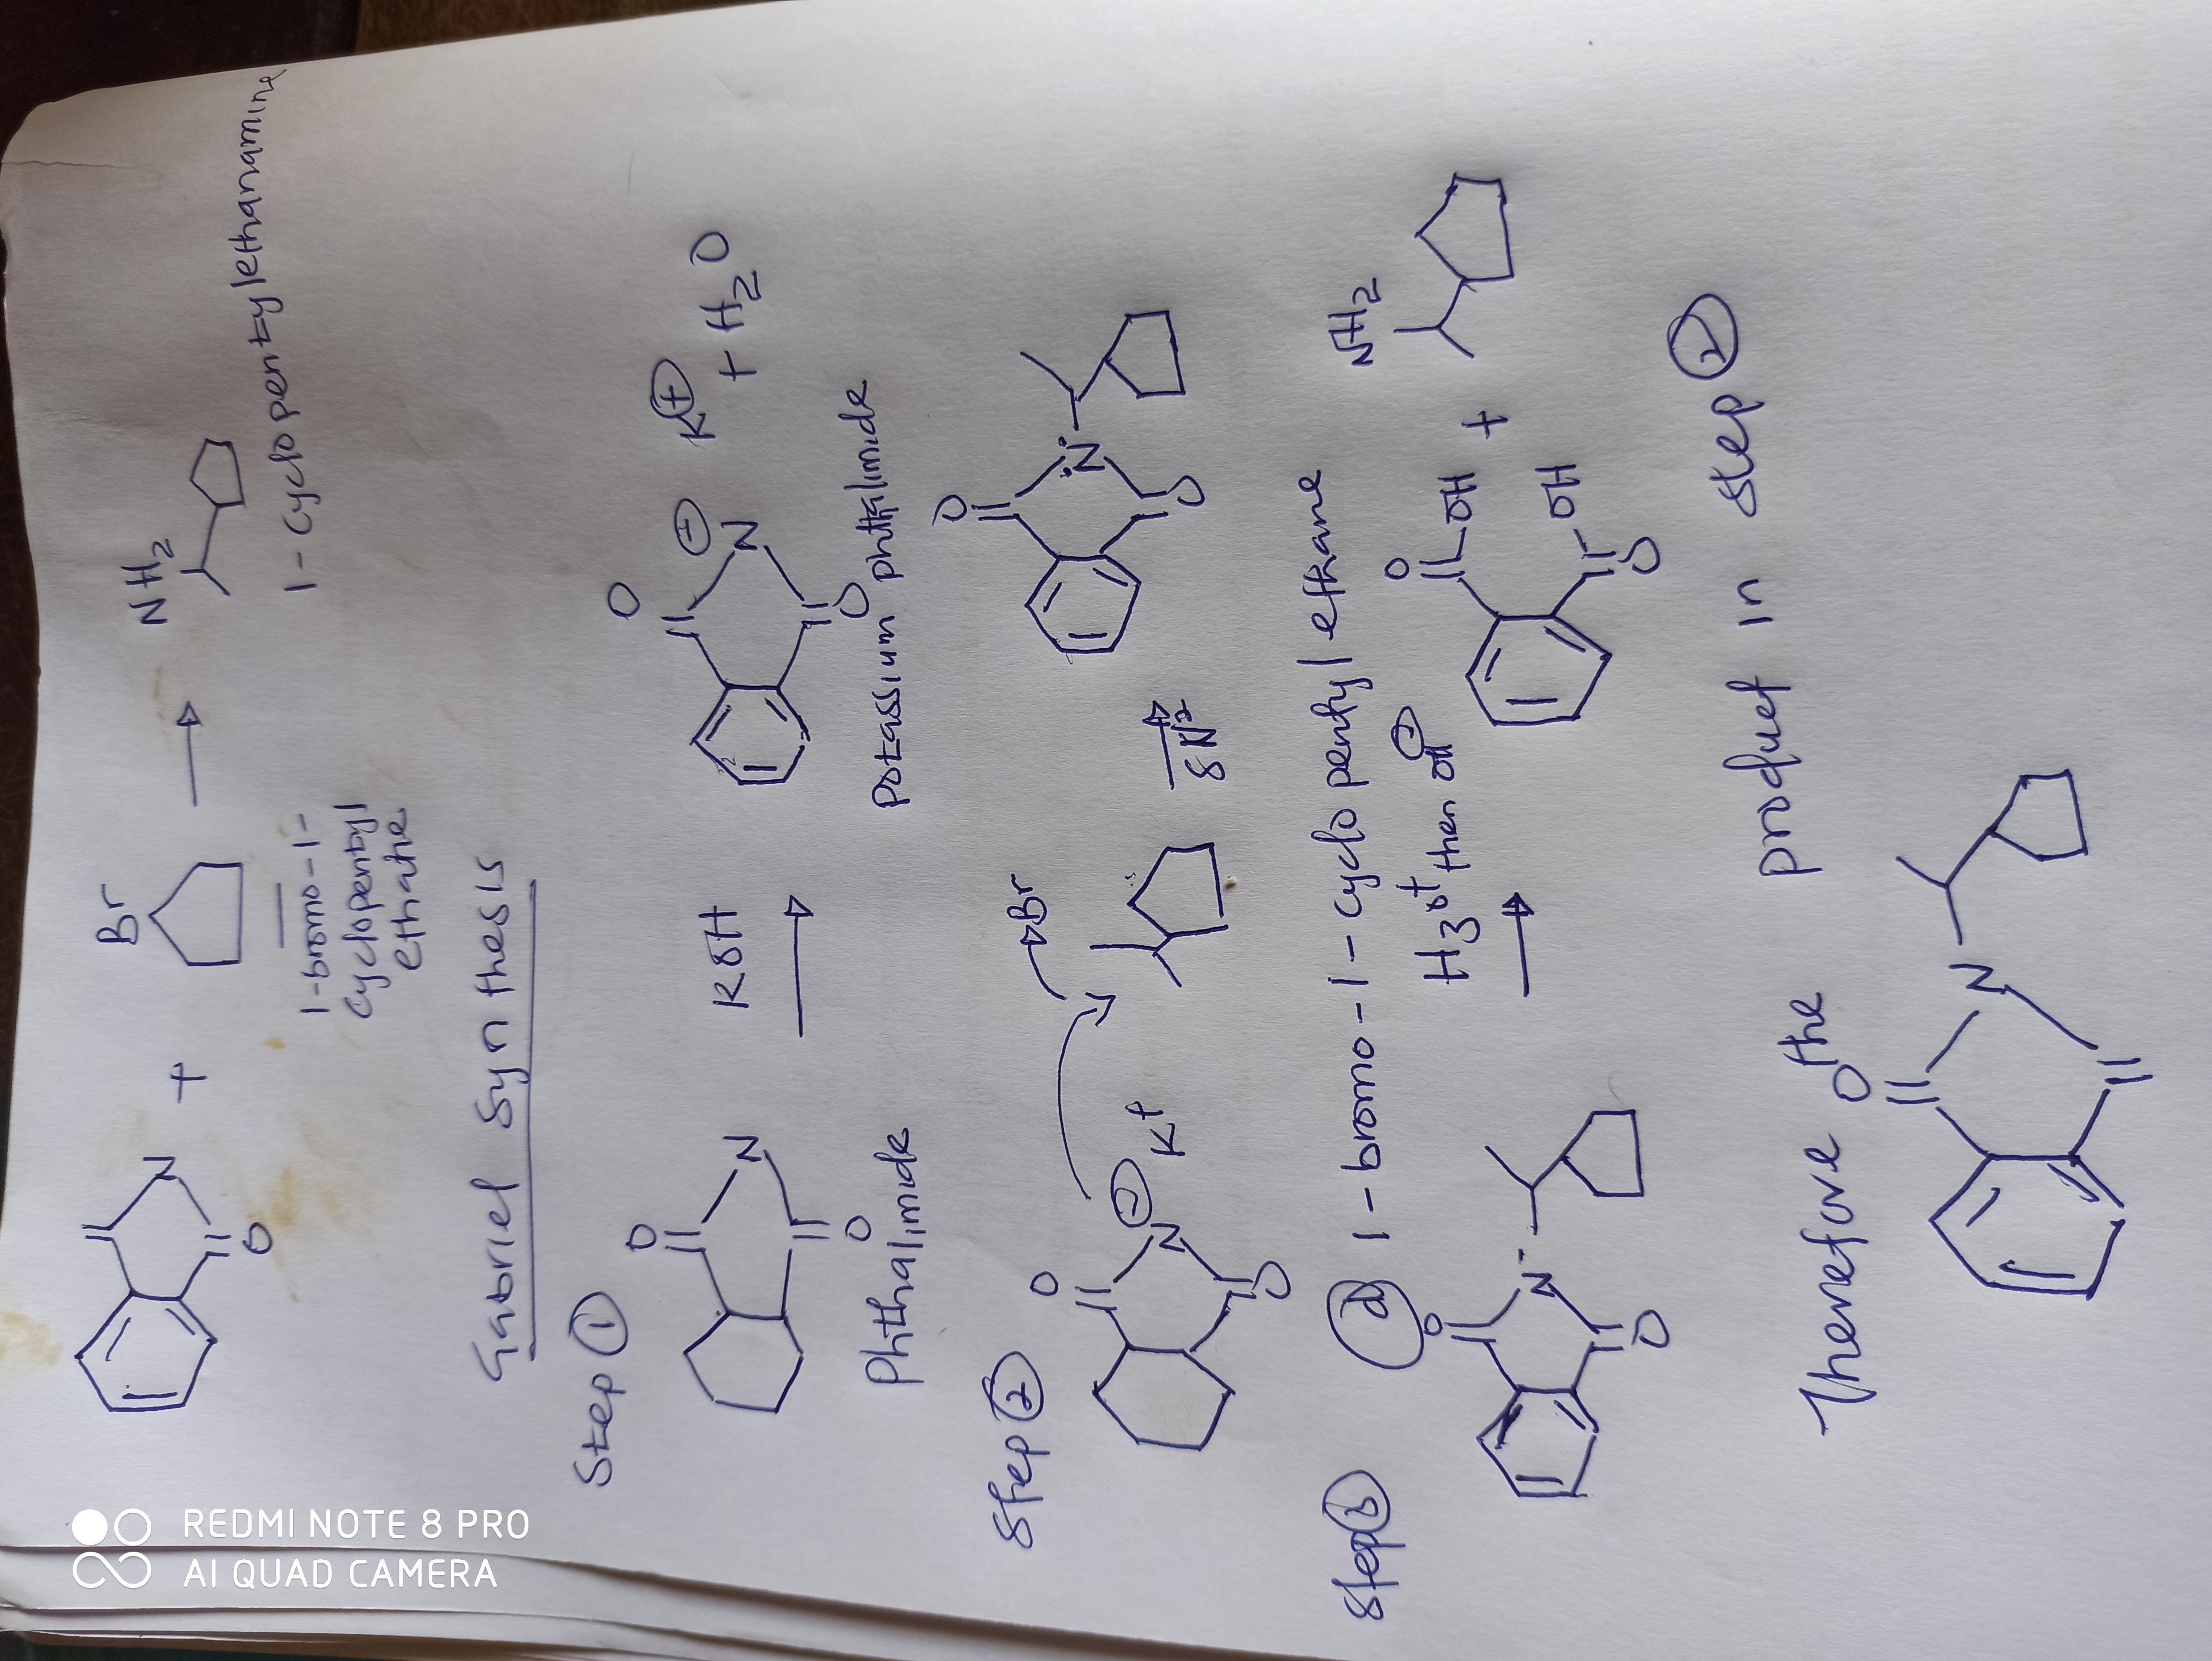 N + Br → NH2
O
1-bromo-1-
cyclopentyl
ethane
1-cyclopentylethanamine
Gabriel Synthesis
Step ①
O N O KOH → O N ⊖ O K⊕ + H2O
Phthalimide
Potassium phthalimide
Step ②
O N ⊖ O K+ Br → SN2 O N O
② 1-bromo-1-cyclopentyl ethane
Step ③
O N O H3O+ then OH⊖ → O OH OH O + NH2
Therefore the product in step ②
O N
REDMI NOTE 8 PRO
AI QUAD CAMERA